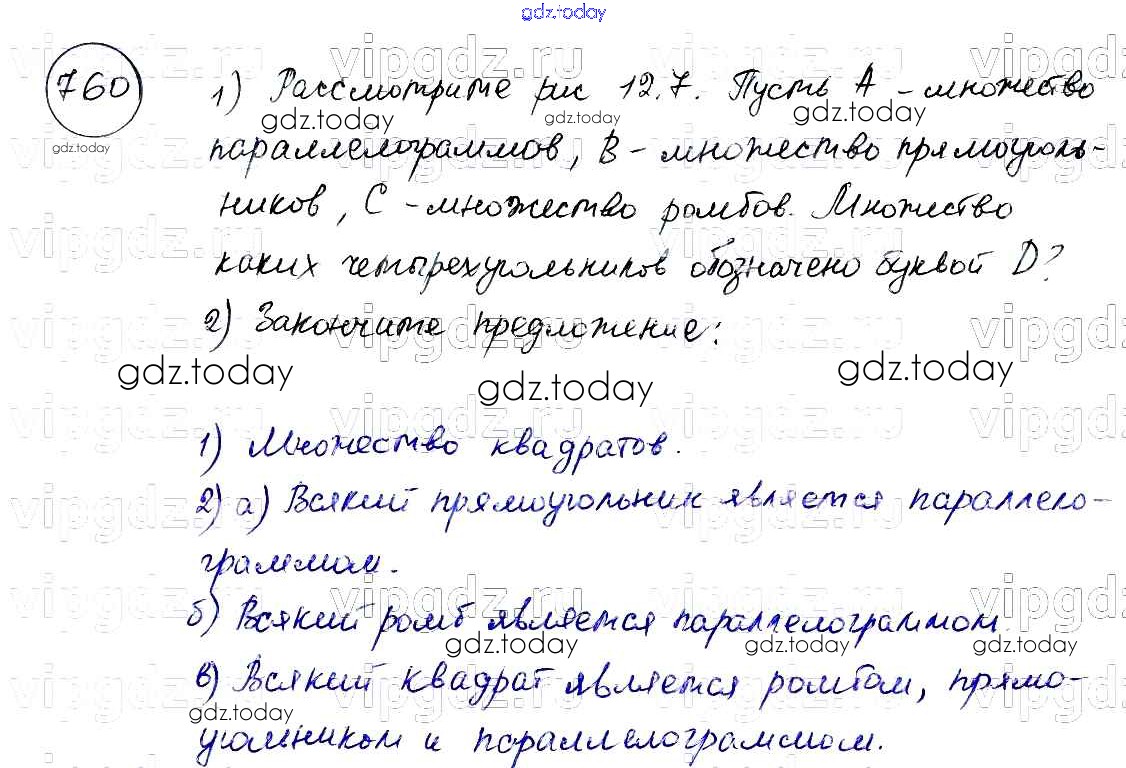 gdz.today
760
1) Рассмотрите рис 12.7. Пусть A - множество
параллелограммов, B - множество прямоуголь-
ников, C - множество ромбов. Множество
каких четырехугольников обозначено буквой D?
2) Закончите предложение:
1) Множество квадратов.
2) а) Всякий прямоугольник является параллело-
граммом.
б) Всякий ромб является параллелограммом
в) Всякий квадрат является ромбом, прямо-
угольником и параллелограммом.